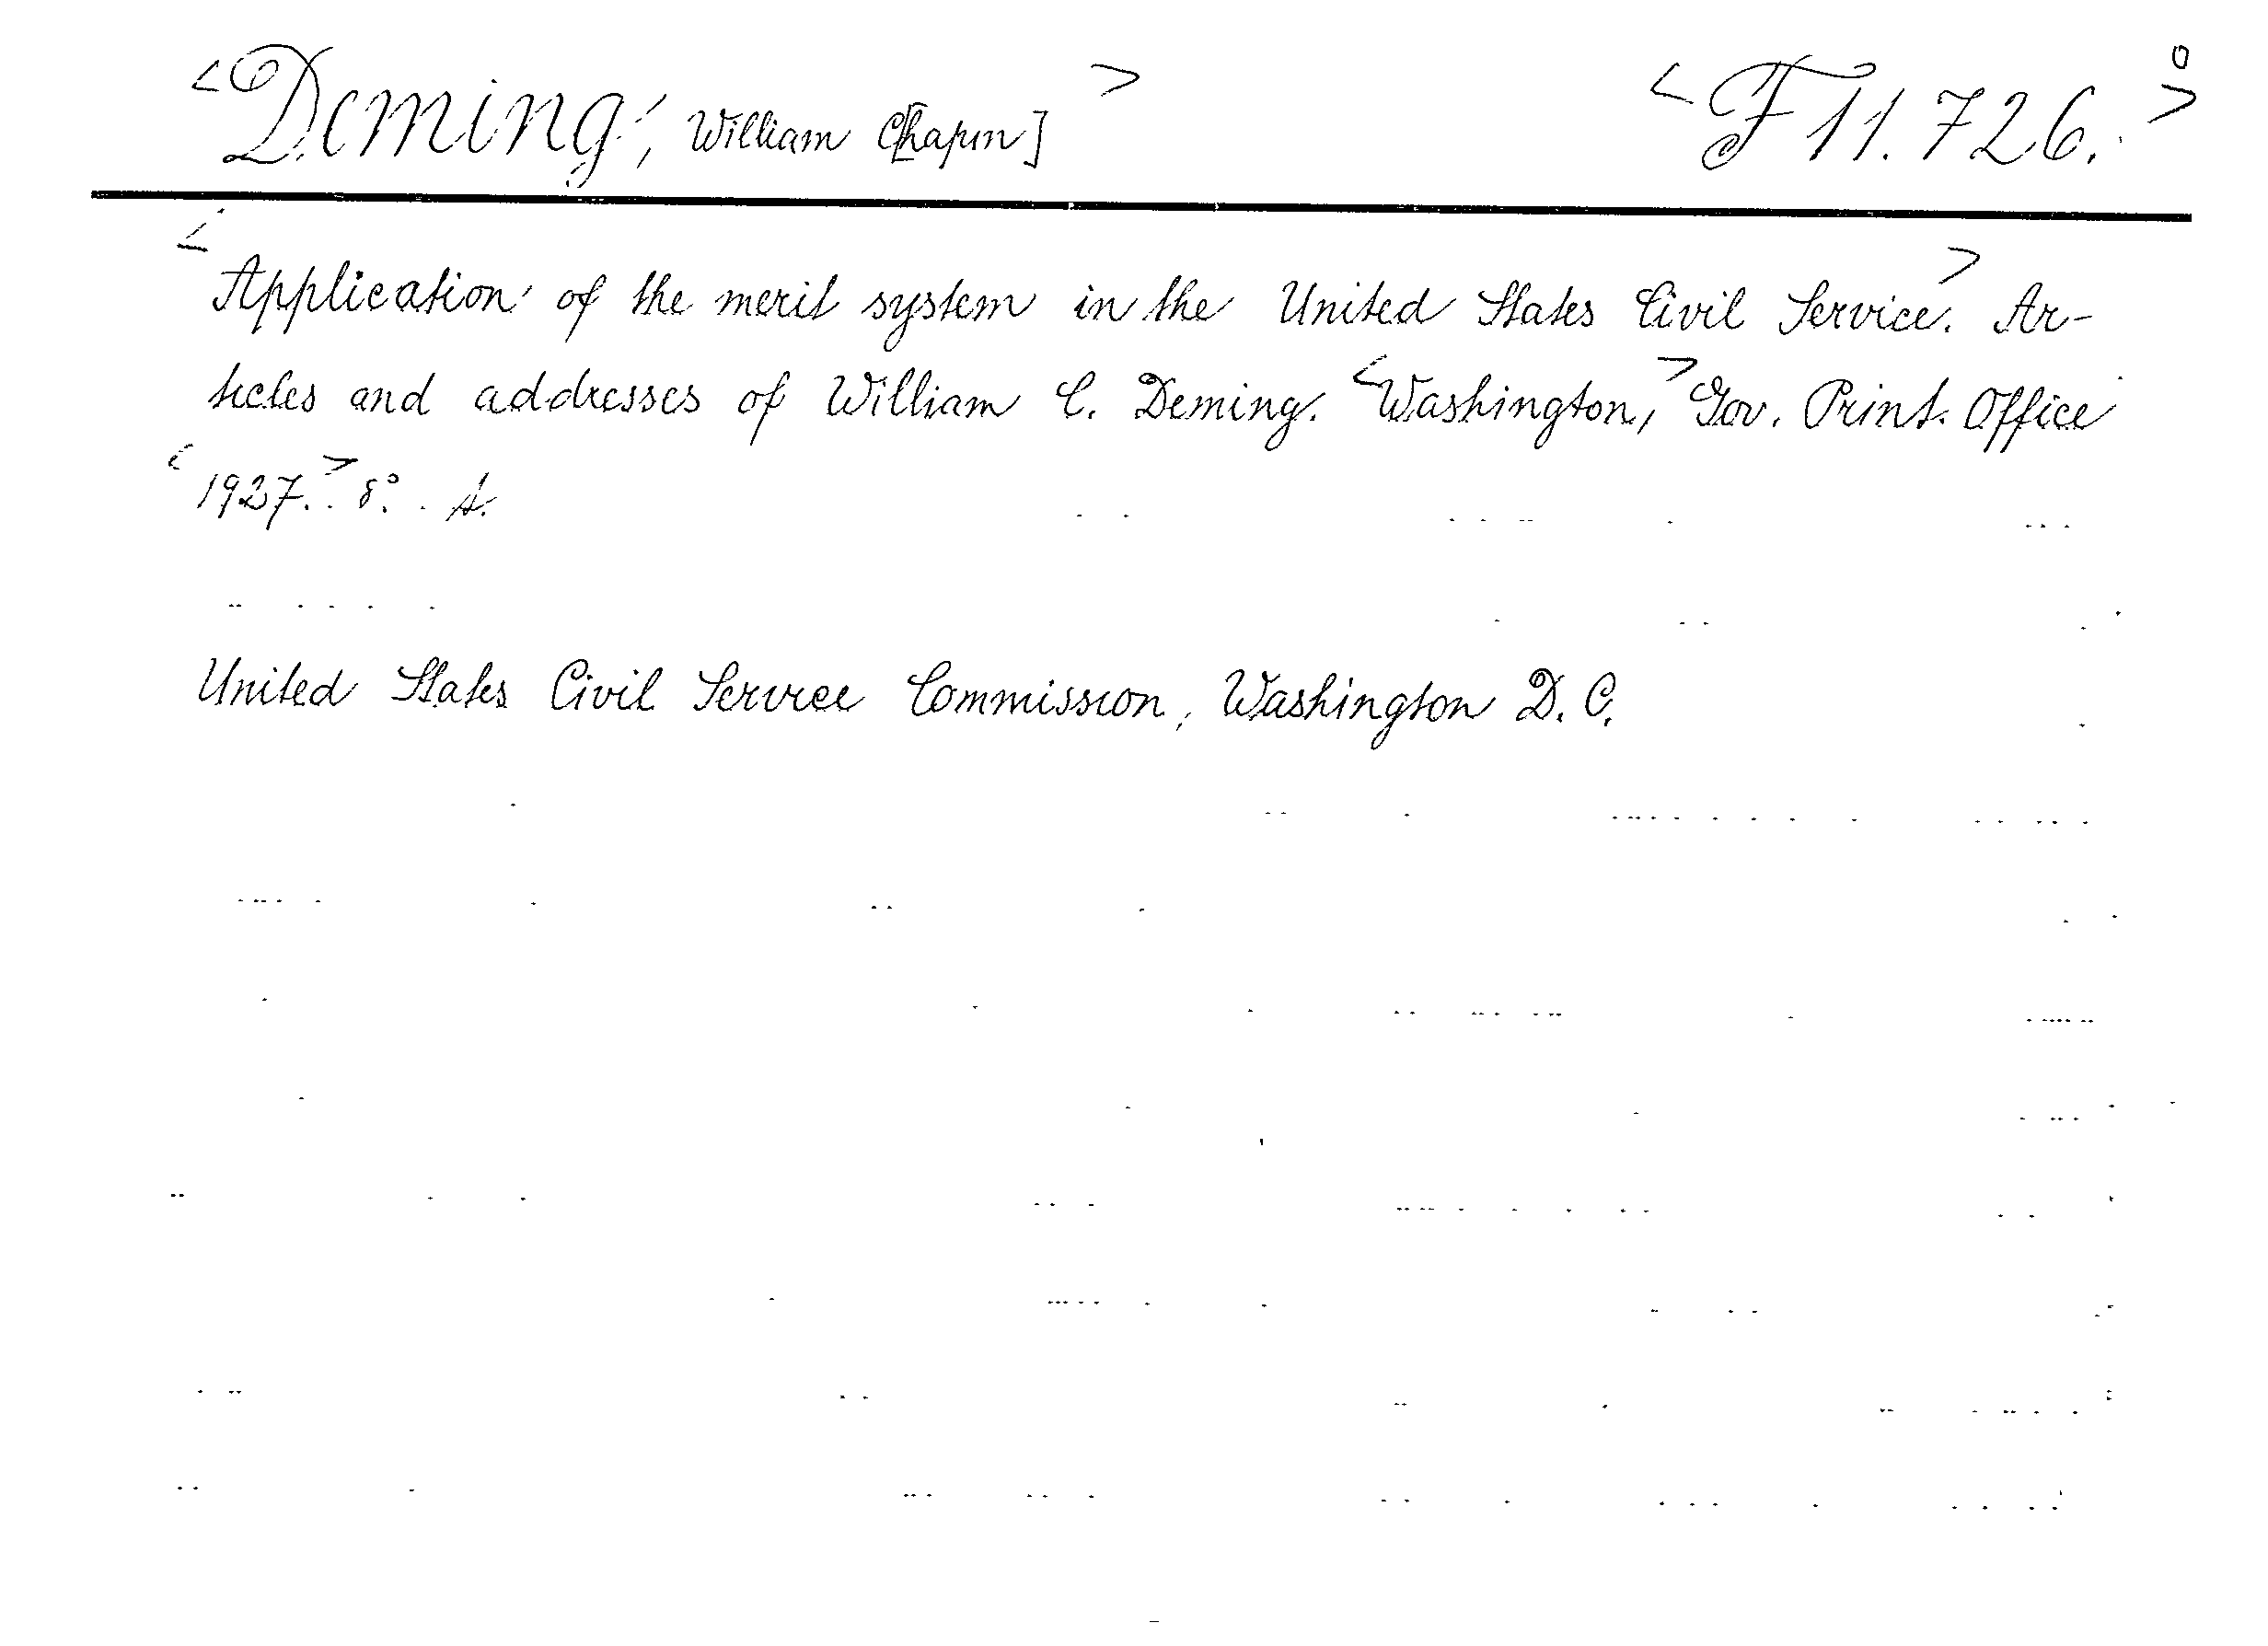 <Deming, William C[hapin]> <F 11.726.>o
<Application of the merit system in the United States Civil Service.> Ar-
ticles and addresses of William C. Deming. <Washington,> Gov. Print. Office
<1927.> 8°. A.
United States Civil Service Commission, Washington D. C.